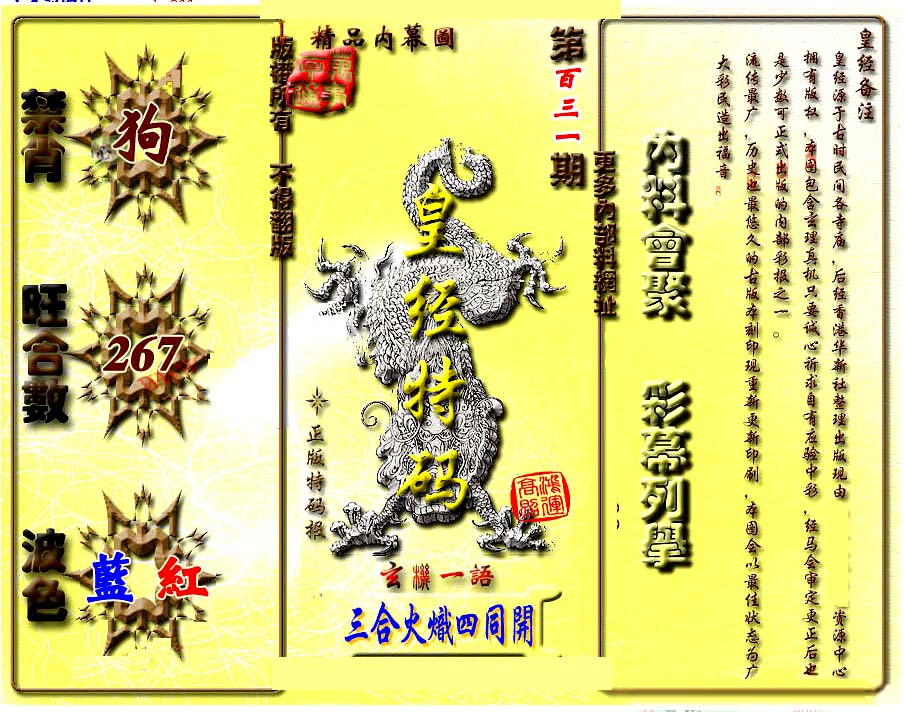 禁肖
狗
旺合數
267
波色
藍 紅
版權所有 不得翻版
精品内幕圖
第百三一期
更多內部料網址
皇经特码
正版特码报
鴻運高照
玄機一語
三合火熾四同開
内料會聚
彩幕列舉
皇经备注
皇经源于古时民间各寺庙，后经香港华新社整理出版现由 资源中心
拥有版权，本图包含玄理真机只要诚心祈求自有应验中彩，经马会审定更正后也
是少数可正式出版的内部彩报之一。
流传最广，历史也最悠久的古版本刻印现重新更新印刷，本图会以最佳状态为广
大彩民造出福音